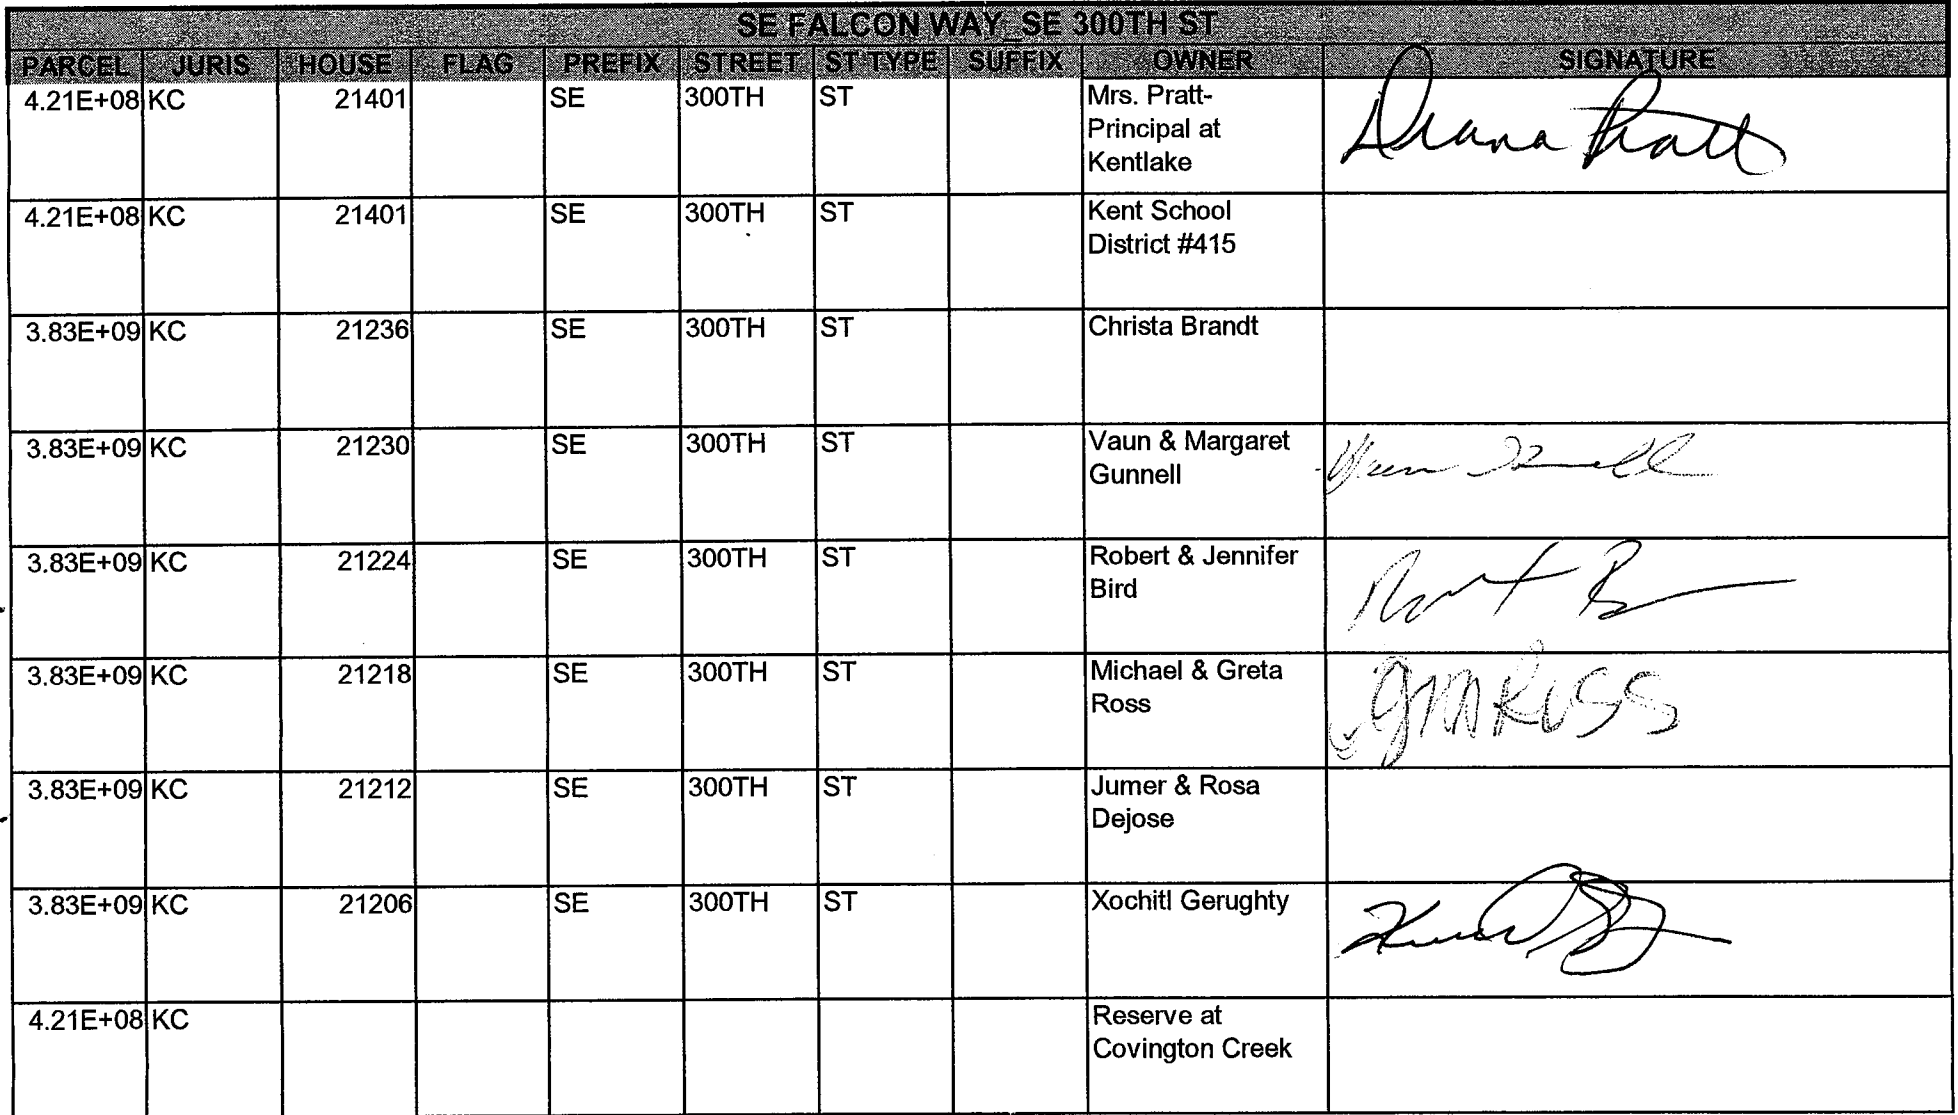 SE FALCON WAY_SE 300TH ST
PARCEL JURIS HOUSE FLAG PREFIX STREET ST TYPE SUFFIX OWNER SIGNATURE
4.21E+08 KC 21401 SE 300TH ST Mrs. Pratt-
Principal at
Kentlake
Diana Pratt
4.21E+08 KC 21401 SE 300TH ST Kent School
District #415
3.83E+09 KC 21236 SE 300TH ST Christa Brandt
3.83E+09 KC 21230 SE 300TH ST Vaun & Margaret
Gunnell
Vaun Gunnell
3.83E+09 KC 21224 SE 300TH ST Robert & Jennifer
Bird
3.83E+09 KC 21218 SE 300TH ST Michael & Greta
Ross
GM Ross
3.83E+09 KC 21212 SE 300TH ST Jumer & Rosa
Dejose
3.83E+09 KC 21206 SE 300TH ST Xochitl Gerughty
4.21E+08 KC Reserve at
Covington Creek